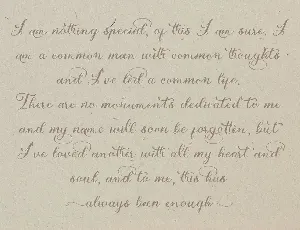 I am nothing special, of this I am sure. I
am a common man with common thoughts
and I've led a common life.
There are no monuments dedicated to me
and my name will soon be forgotten, but
I've loved another with all my heart and
soul, and to me, this has
always been enough